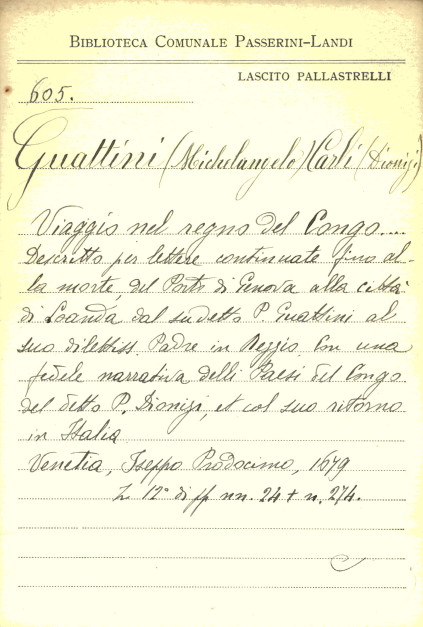 BIBLIOTECA COMUNALE PASSERINI-LANDI
LASCITO PALLASTRELLI
605.
Guattini (Michelangelo) Carli (Dionigi)
Viaggio nel regno del Congo....
Descritto per lettere continuate fino al-
la morte, del Porto di Genova alla città
di Loanda dal sudetto P. Guattini al
suo dilettiss. Padre in Reggio. Con una
fedele narrativa delli Paesi del Congo
del detto P. Dionigi, et col suo ritorno
in Italia
Venetia, Iseppo Prodocimo, 1679
12° di ff nn. 24 + n. 274.